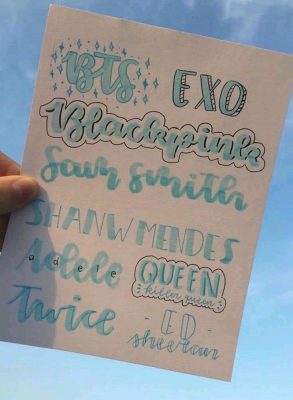 BTS EXO
Blackpink
Sam Smith
SHANW MENDES
Adele
adele
QUEEN
killer queen
Twice
-ED-
sheeran